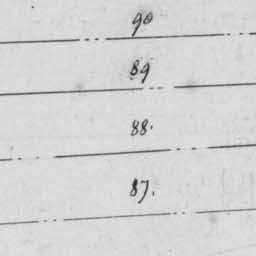 90
89
88.
87.